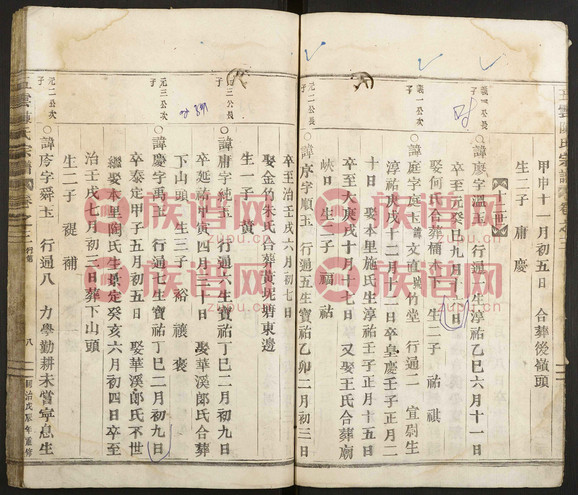 甲申十一月初五日 合葬後嶺頭
生二子 庸 慶
十一世
義一公長子
諱慶字溫玉 行通一生淳祐乙巳六月十一日
卒至元癸巳九月十一日
娶何氏合葬楠木 生二子 祐 祺
義一公次子
諱庭字庭玉 文直號竹堂 行通二 宣尉生
淳祐庚戌十二月十二日卒皇慶壬子正月二
十日 娶本里施氏生淳祐壬子正月十五日
卒至大庚戌十月十七日 又娶王氏合葬廟
峽口 生二子 福 祜
元二公長子
諱序字順玉 行通五生寶祐乙卯二月初三日
卒至治壬戌六月初七日
娶金竹朱氏合葬黄坭塘東邊
生一子 黄
元三公長子
諱庸字純玉 行通六生寶祐丁巳二月初九日
卒延祐甲寅四月三十日 娶華溪郎氏合葬
下山頭 生三子 裕 䄡 褒
元三公次子
諱慶字禹玉 行通七生寶祐丁巳二月初九日
卒泰定甲子五月初五日 娶華溪郎氏不世
繼娶本里阎氏生景定癸亥六月初四日卒至
治壬戌七月初三日葬下山頭
生二子 禔 補
元二公次子
諱序字舜玉 行通八 力學勤耕未嘗寧息生
五雲陳氏宗譜 卷之二 行第 八 同治戊辰年重修
族谱网